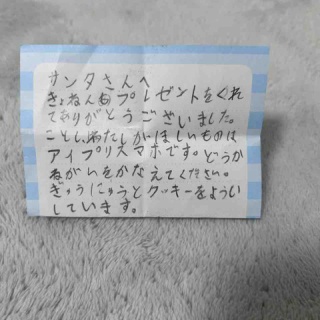 サンタさんへ
きょねんもプレゼントをくれ
てありがとうございました。
ことし、わたしがほしいものは
アイプリスマホです。どうか
ねがいをかなえてください。
ぎゅうにゅうとクッキーをようい
しています。